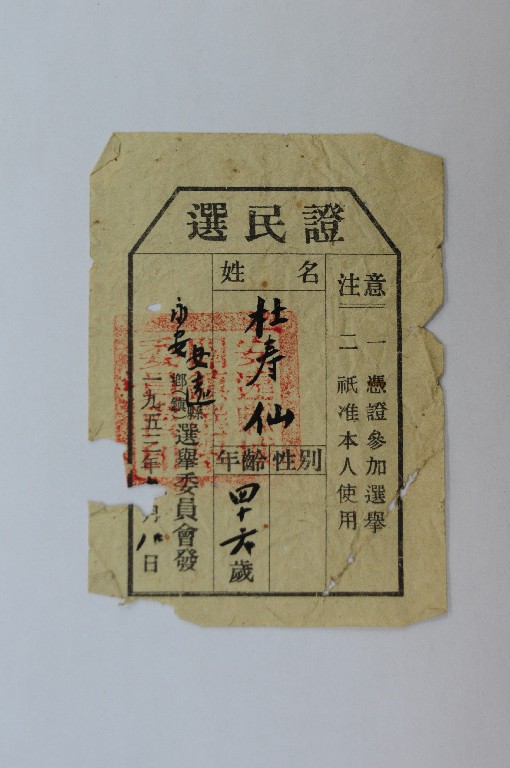 選民證
注意
一 憑證參加選舉
二 祇准本人使用
姓名
杜寿仙
性別
年齡
四十六歲
安远縣
永安鄉(鎮)選舉委員會發
一九五三年 月八日